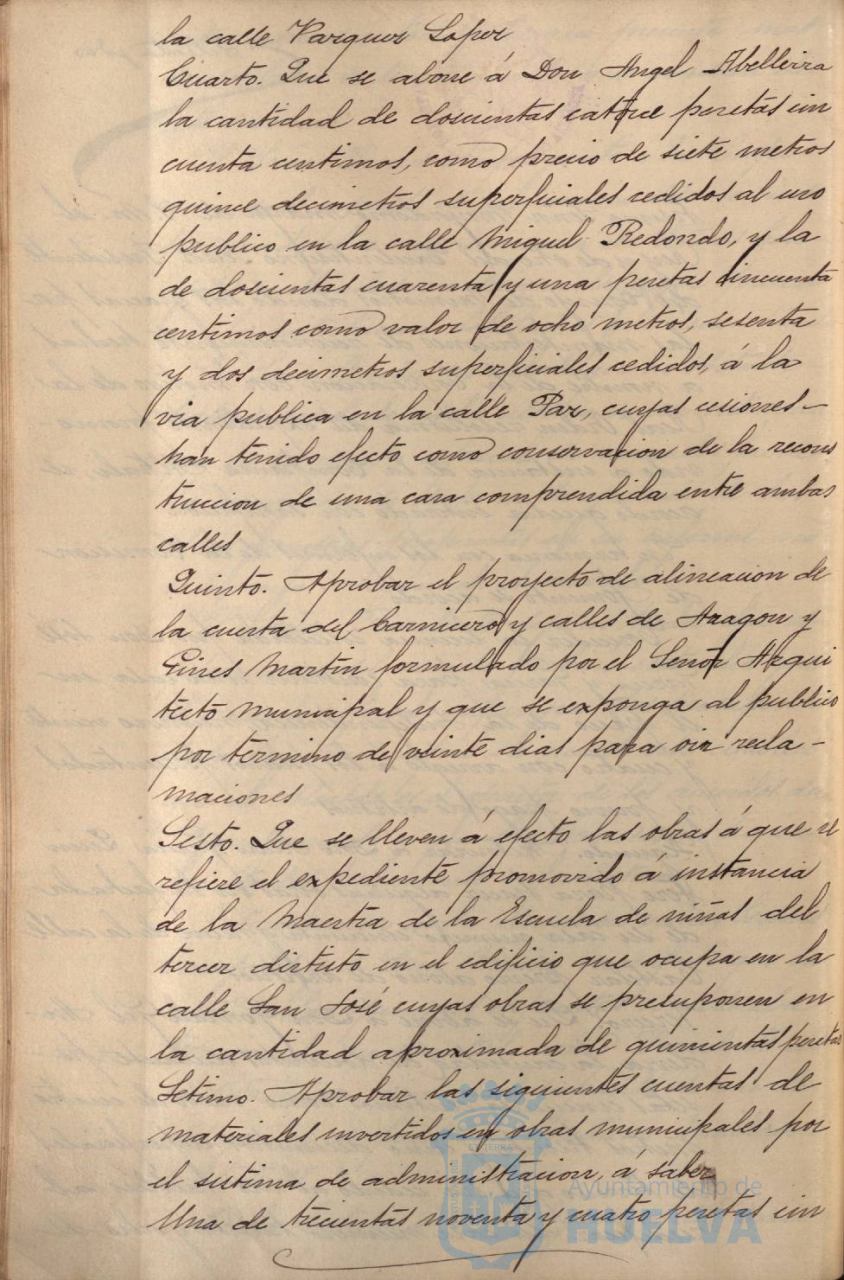 la calle Vazquez Lopez
Cuarto. Que se abone á Don Angel Abelleira
la cantidad de doscientas catorce pesetas cin
cuenta centimos, como precio de siete metros
quince decimetros superficiales cedidos al uso
publico en la calle Miguel Redondo, y la
de doscientas cuarenta y una pesetas cincuenta
centimos como valor de ocho metros, sesenta
y dos decimetros superficiales cedidos, á la
via publica en la calle Paz, cuyas cesiones-
han tenido efecto como conservacion de la recons
truccion de una casa comprendida entre ambas
calles
Quinto. Aprobar el proyecto de alineacion de
la cuesta del Carnicero y calles de Aragon y
Gines Martin formulado por el Señor Arqui
tecto municipal y que se exponga al publico
por termino de veinte dias para oir recla-
maciones
Sesto. Que se lleven á efecto las obras á que se
refiere el expediente promovido á instancia
de la Maestra de la Escuela de niñas del
tercer distrito en el edificio que ocupa en la
calle San José cuyas obras se presuponen en
la cantidad aproximada de quinientas pesetas
Setimo. Aprobar las siguientes cuentas de
materiales invertidos en obras municipales por
el sistema de administracion, á saber
Una de trescientas noventa y cuatro pesetas cin
Ayuntamiento de
HUELVA